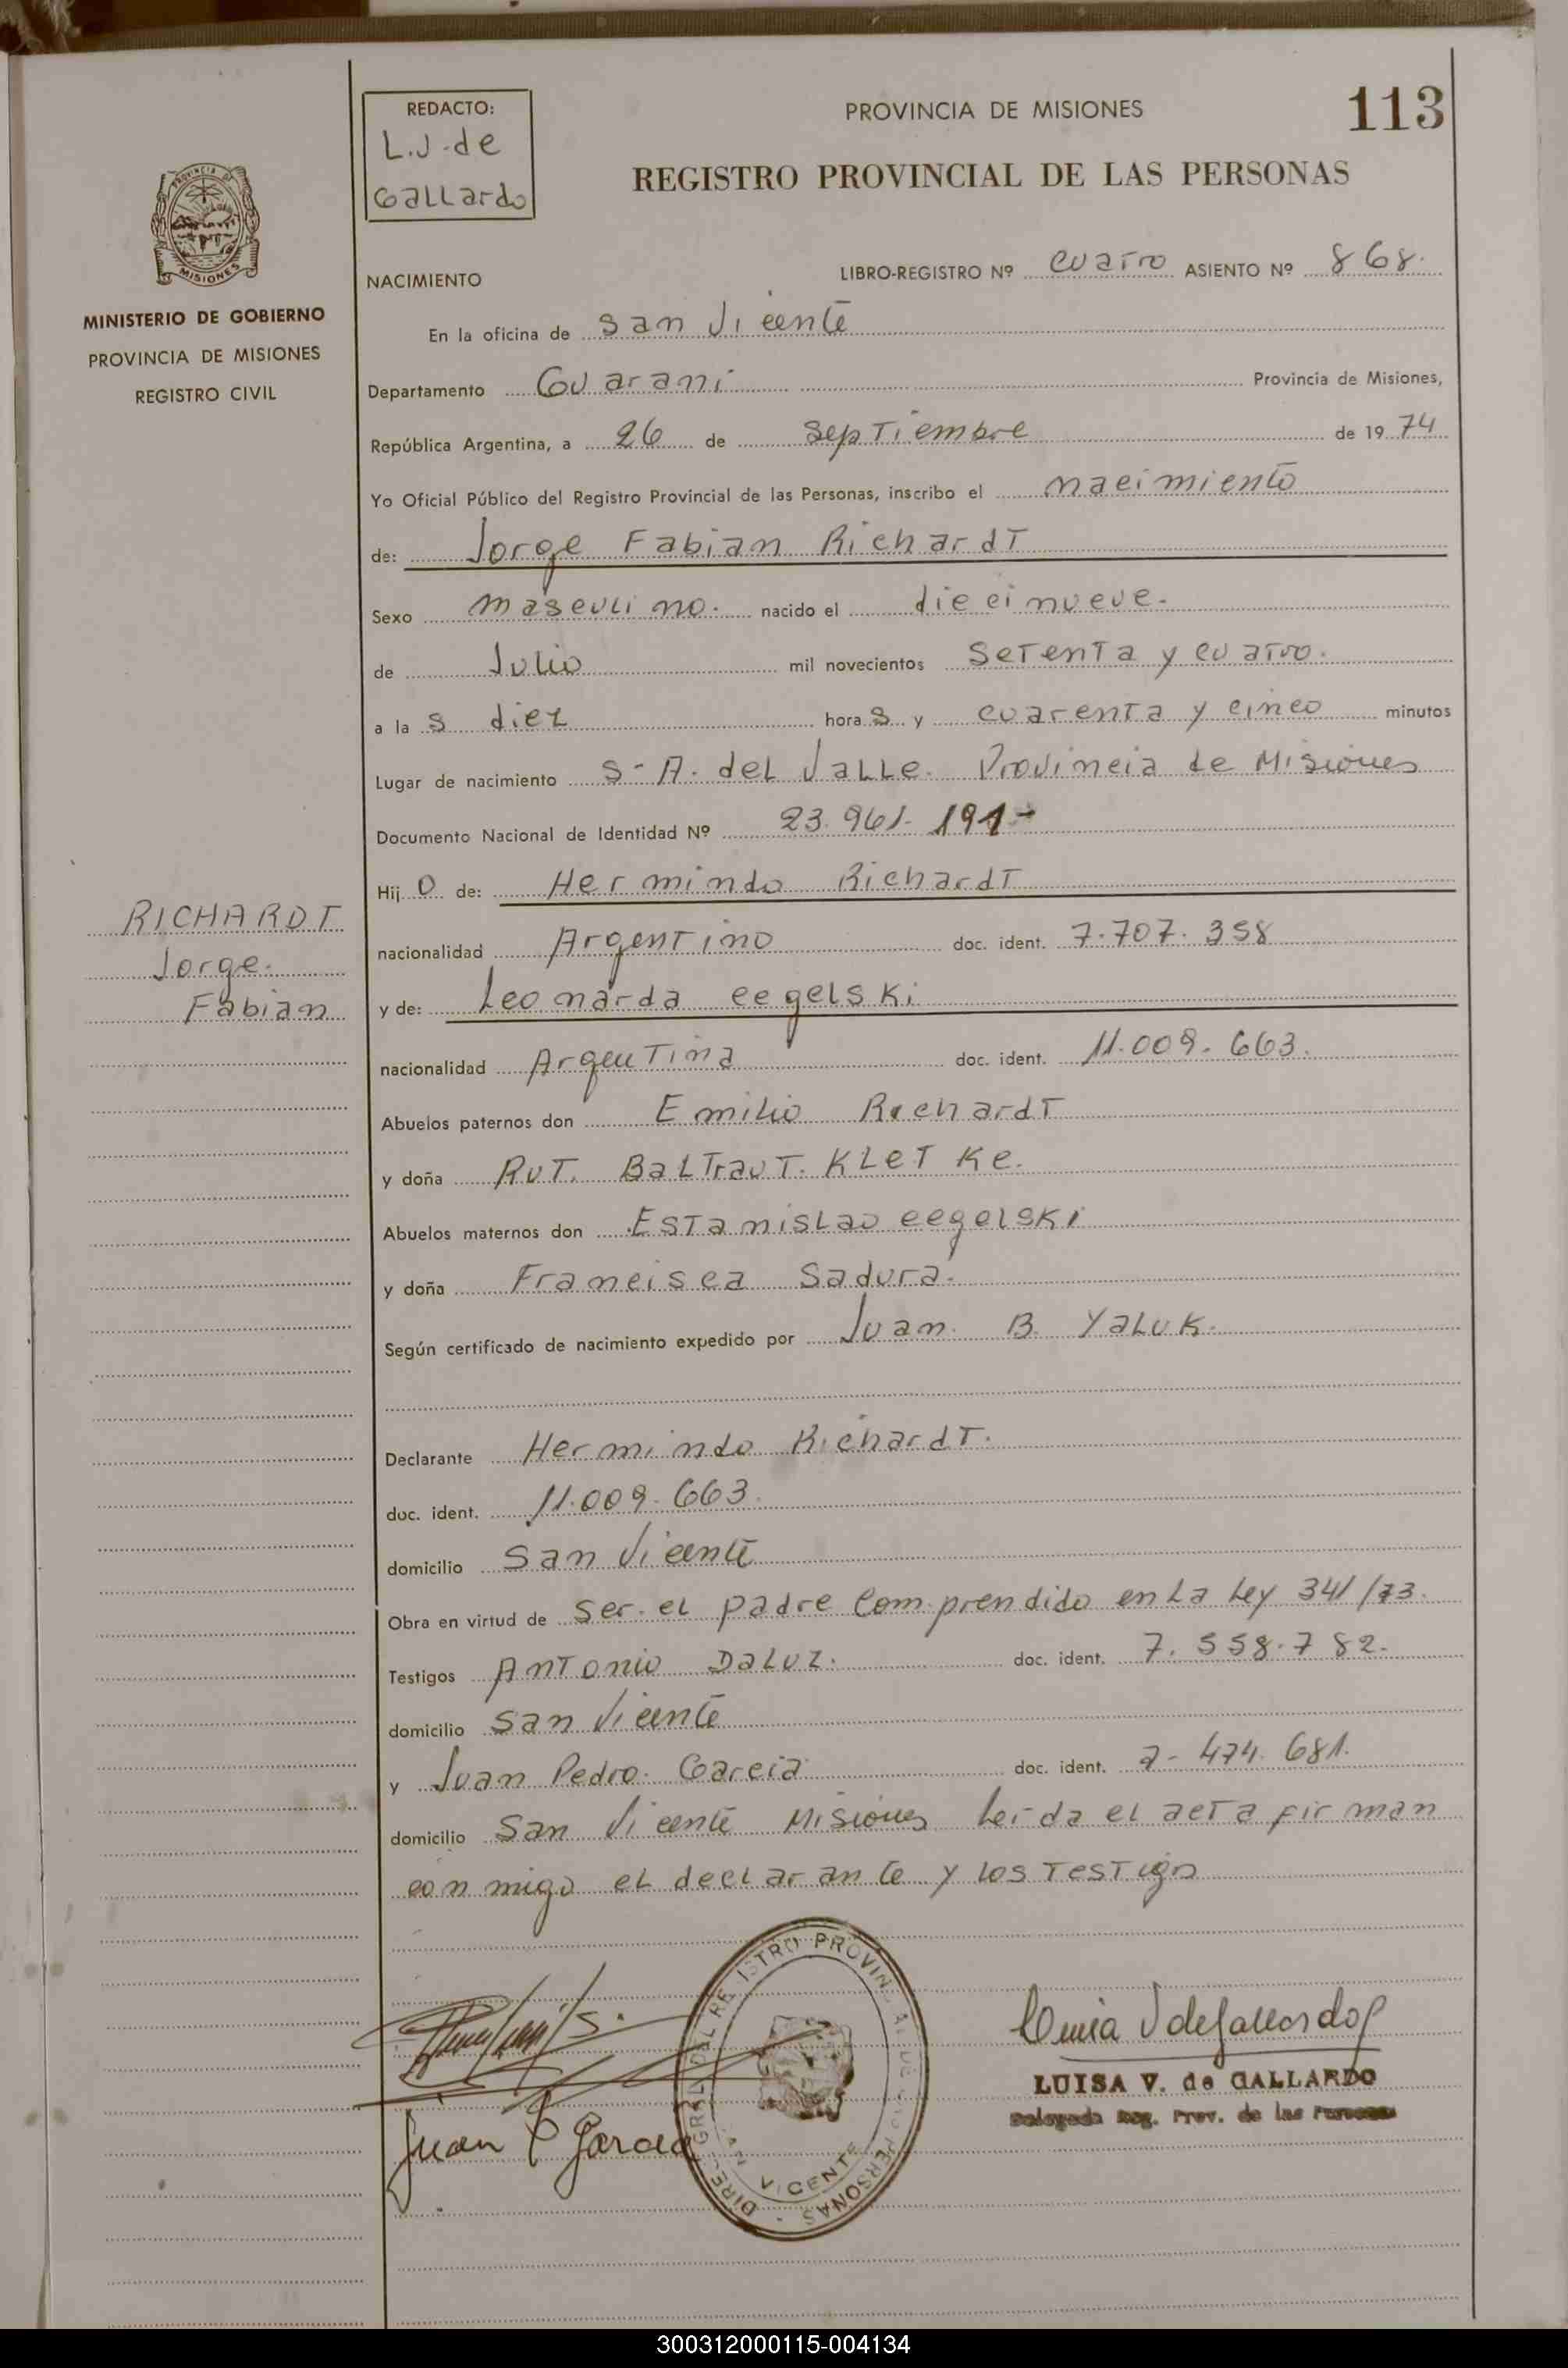 REDACTO:
L.J. de
Gallardo
PROVINCIA DE MISIONES
113
REGISTRO PROVINCIAL DE LAS PERSONAS
PROVINCIA DE
MISIONES
MINISTERIO DE GOBIERNO
PROVINCIA DE MISIONES
REGISTRO CIVIL
NACIMIENTO
LIBRO-REGISTRO Nº cuatro ASIENTO Nº 868.
En la oficina de San Vicente
Departamento Guarani Provincia de Misiones,
República Argentina, a 26 de Septiembre de 1974
Yo Oficial Público del Registro Provincial de las Personas, inscribo el nacimiento
de: Jorge Fabian Richardt
Sexo masculino. nacido el diecinueve.
de Julio mil novecientos setenta y cuatro.
a las diez horas y cuarenta y cinco minutos
Lugar de nacimiento S. A. del Valle. Provincia de Misiones
Documento Nacional de Identidad Nº 23.961.191-
Hijo de: Hermindo Richardt
nacionalidad Argentino doc. ident. 7.707.358
y de: Leonarda Cegelski
nacionalidad Argentina doc. ident. 11.009.663.
Abuelos paternos don Emilio Richardt
y doña Rut. Baltraut. Kletke.
Abuelos maternos don Estanislao Cegelski
y doña Francisca Sadura.
Según certificado de nacimiento expedido por Juan. B. Yaluk.
RICHARDT
Jorge.
Fabian
Declarante Hermindo Richardt.
doc. ident. 11.009.663.
domicilio San Vicente
Obra en virtud de ser. el padre comprendido en la Ley 341/73.
Testigos Antonio Daluz. doc. ident. 7.558.782.
domicilio San Vicente
y Juan Pedro. Garcia doc. ident. 7-474.681.
domicilio San Vicente Misiones Leida el acta firman
conmigo el declarante y los testigos
Juan P Garcia
LUISA V. de GALLARDO
Delegada Reg. Prov. de las Personas
300312000115-004134